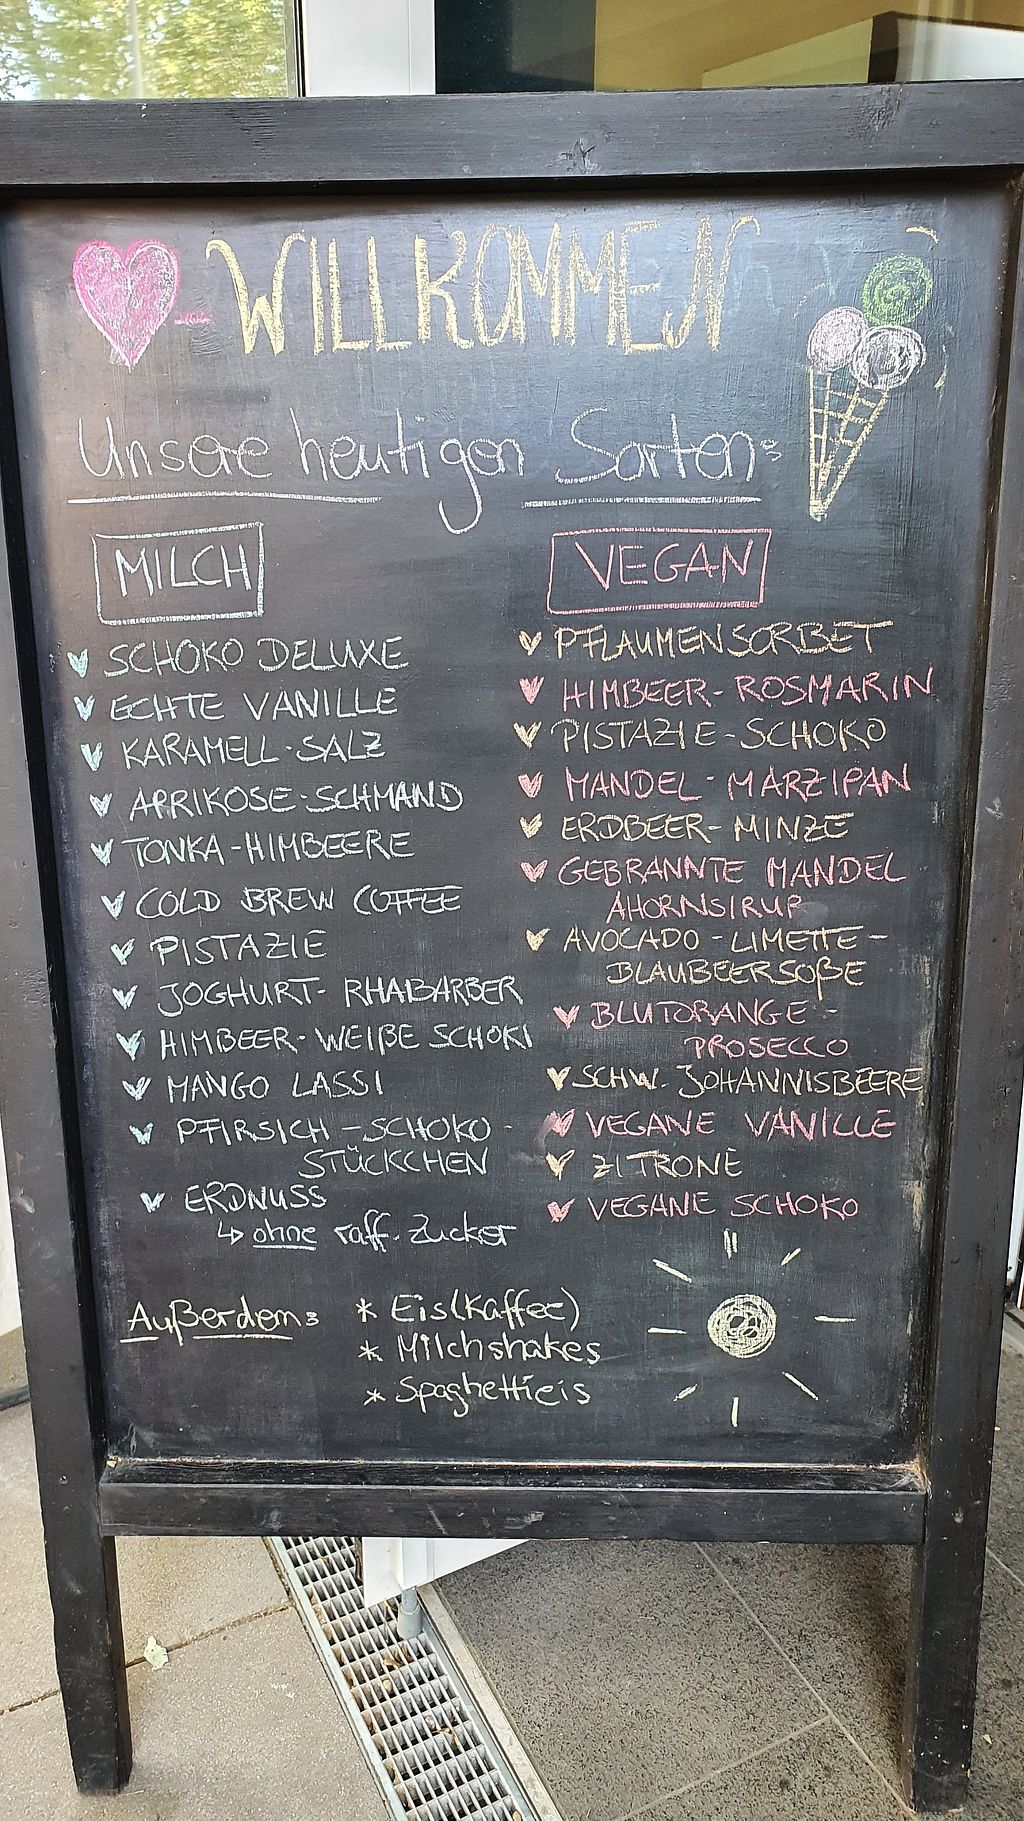 WILLKOMMEN
Unsere heutigen Sorten:
MILCH
SCHOKO DELUXE
ECHTE VANILLE
KARAMELL-SALZ
APRIKOSE-SCHMAND
TONKA-HIMBEERE
COLD BREW COFFEE
PISTAZIE
JOGHURT-RHABARBER
HIMBEER-WEIßE SCHOKI
MANGO LASSI
PFIRSICH-SCHOKO-
STÜCKCHEN
ERDNUSS
↳ ohne raff. Zucker
VEGAN
PFLAUMENSORBET
HIMBEER-ROSMARIN
PISTAZIE-SCHOKO
MANDEL-MARZIPAN
ERDBEER-MINZE
GEBRANNTE MANDEL
AHORNSIRUP
AVOCADO-LIMETTE-
BLAUBEERSOßE
BLUTORANGE-
PROSECCO
SCHW. JOHANNISBEERE
VEGANE VANILLE
ZITRONE
VEGANE SCHOKO
Außerdem:
* Eis(Kaffee)
* Milchshakes
* Spaghettieis